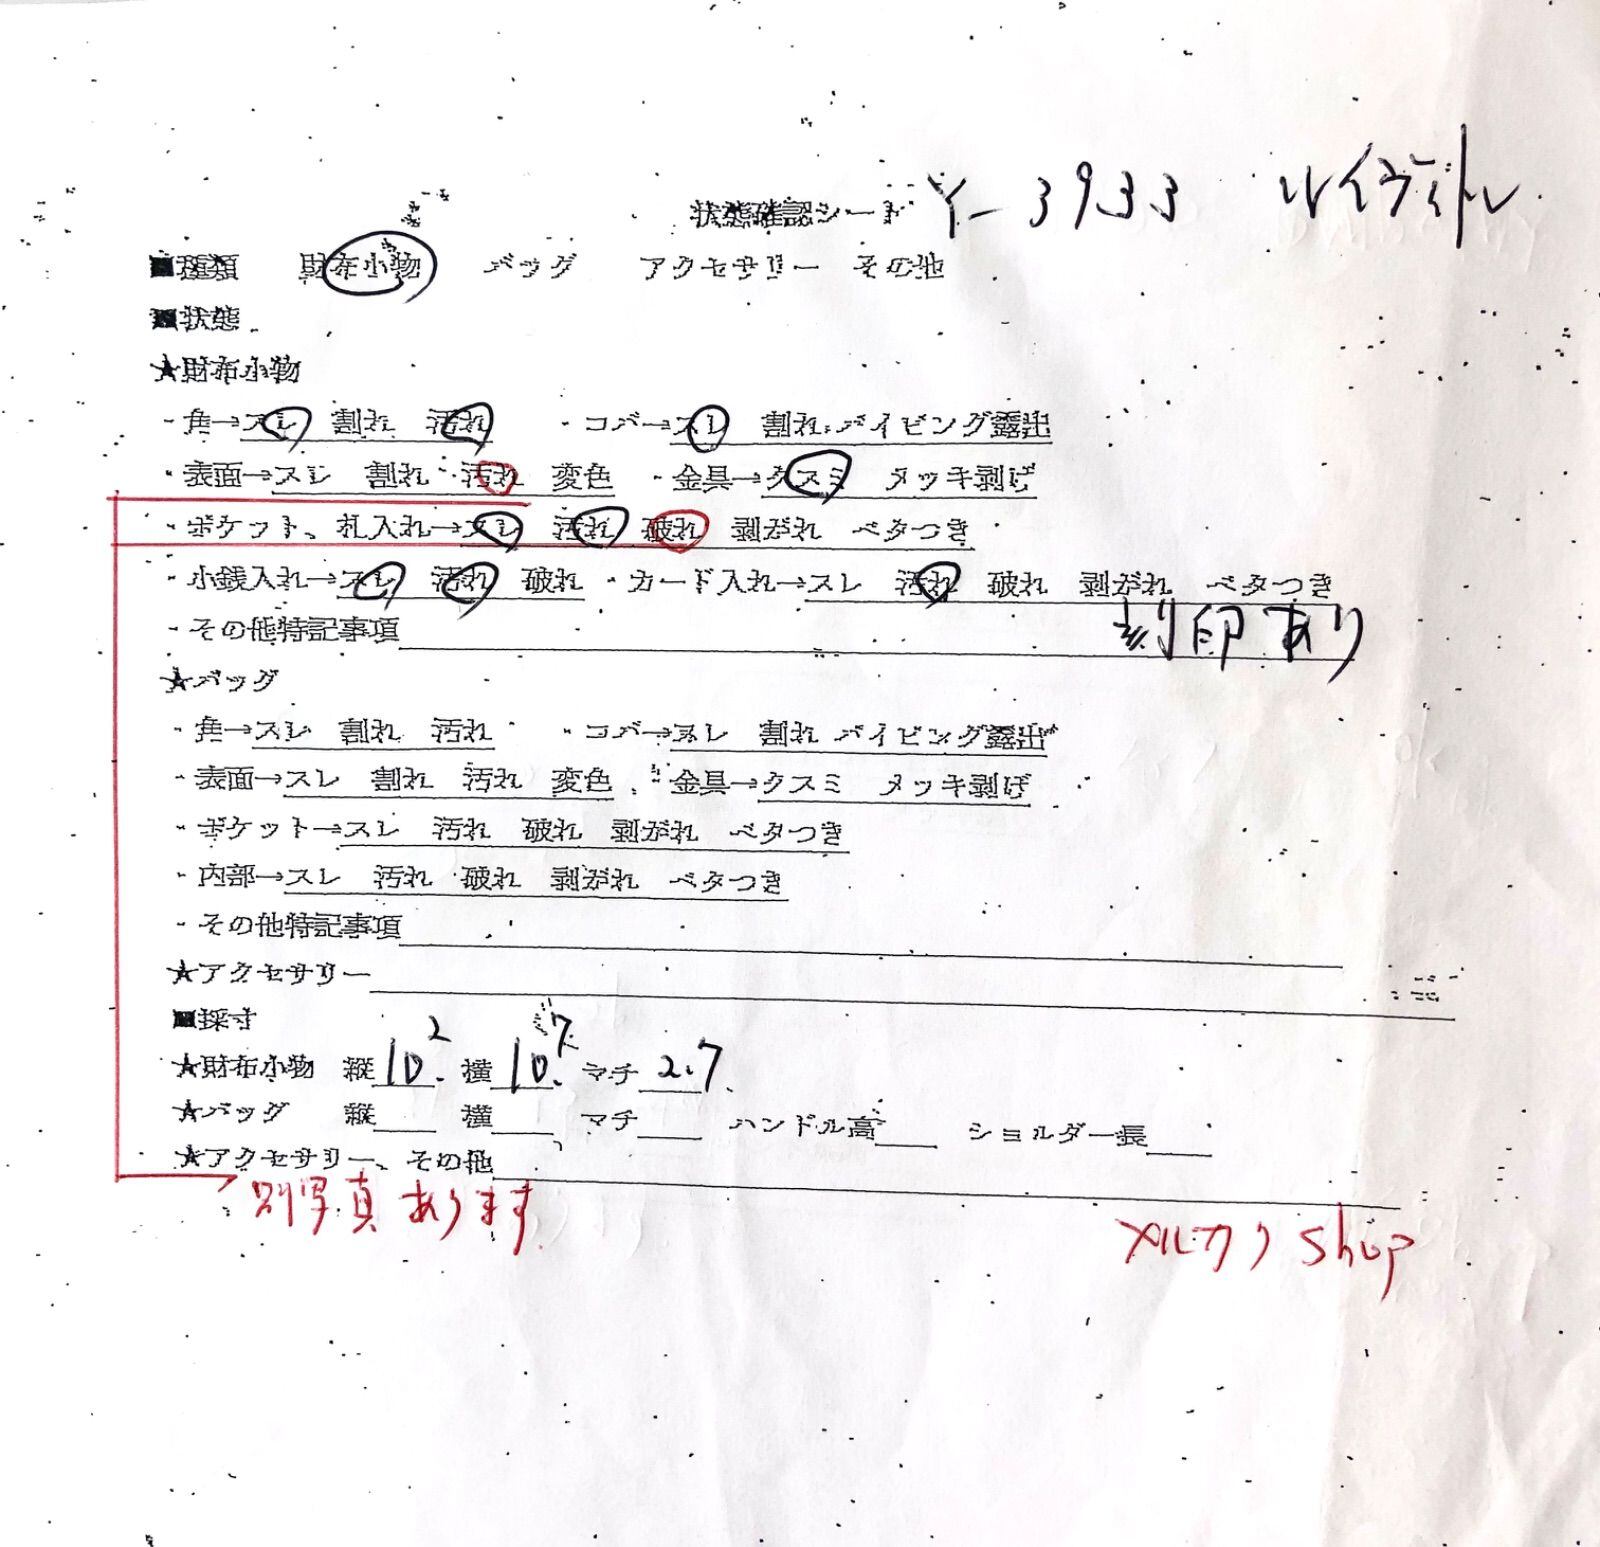 状態確認シート Y-3933 ルイヴィトン
■種類 財布小物 バッグ アクセサリー その他
■状態
★財布小物
・角→スレ 割れ 汚れ ・コバ→スレ 割れ パイピング露出
・表面→スレ 割れ 汚れ 変色 ・金具→クスミ メッキ剥げ
・ポケット、札入れ→スレ 汚れ 破れ 剥がれ ベタつき
・小銭入れ→スレ 汚れ 破れ ・カード入れ→スレ 汚れ 破れ 剥がれ ベタつき
・その他特記事項 刻印あり
★バッグ
・角→スレ 割れ 汚れ ・コバ→スレ 割れ パイピング露出
・表面→スレ 割れ 汚れ 変色 ・金具→クスミ メッキ剥げ
・ポケット→スレ 汚れ 破れ 剥がれ ベタつき
・内部→スレ 汚れ 破れ 剥がれ ベタつき
・その他特記事項
★アクセサリー
■採寸
★財布小物 縦 10.2 横 10.7 マチ 2.7
★バッグ 縦 横 マチ ハンドル高 ショルダー長
★アクセサリー、その他
別写真あります
メルカリ shop